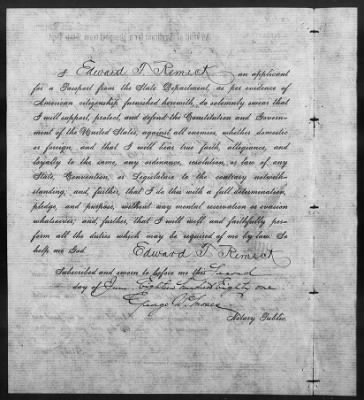 I Edward T. Remick an applicant
for a Passport from the State Department, as per evidence of
American citizenship furnished herewith, do solemnly swear that
I will support, protect, and defend the Constitution and Govern-
ment of the United States, against all enemies, whether domestic
or foreign, and that I will bear true faith, allegiance, and
loyalty to the same, any ordinance, resolution or law of any
State, Convention, or Legislature to the contrary notwith-
standing; and, further, that I do this with a full determination,
pledge, and purpose, without any mental reservation or evasion
whatsoever; and, further, that I will well and faithfully per-
form all the duties which may be required of me by law. So
help me God. Edward T. Remick
Subscribed and sworn to before me this Second
day of June Eighteen hundred Eighty one
George
Notary Public.